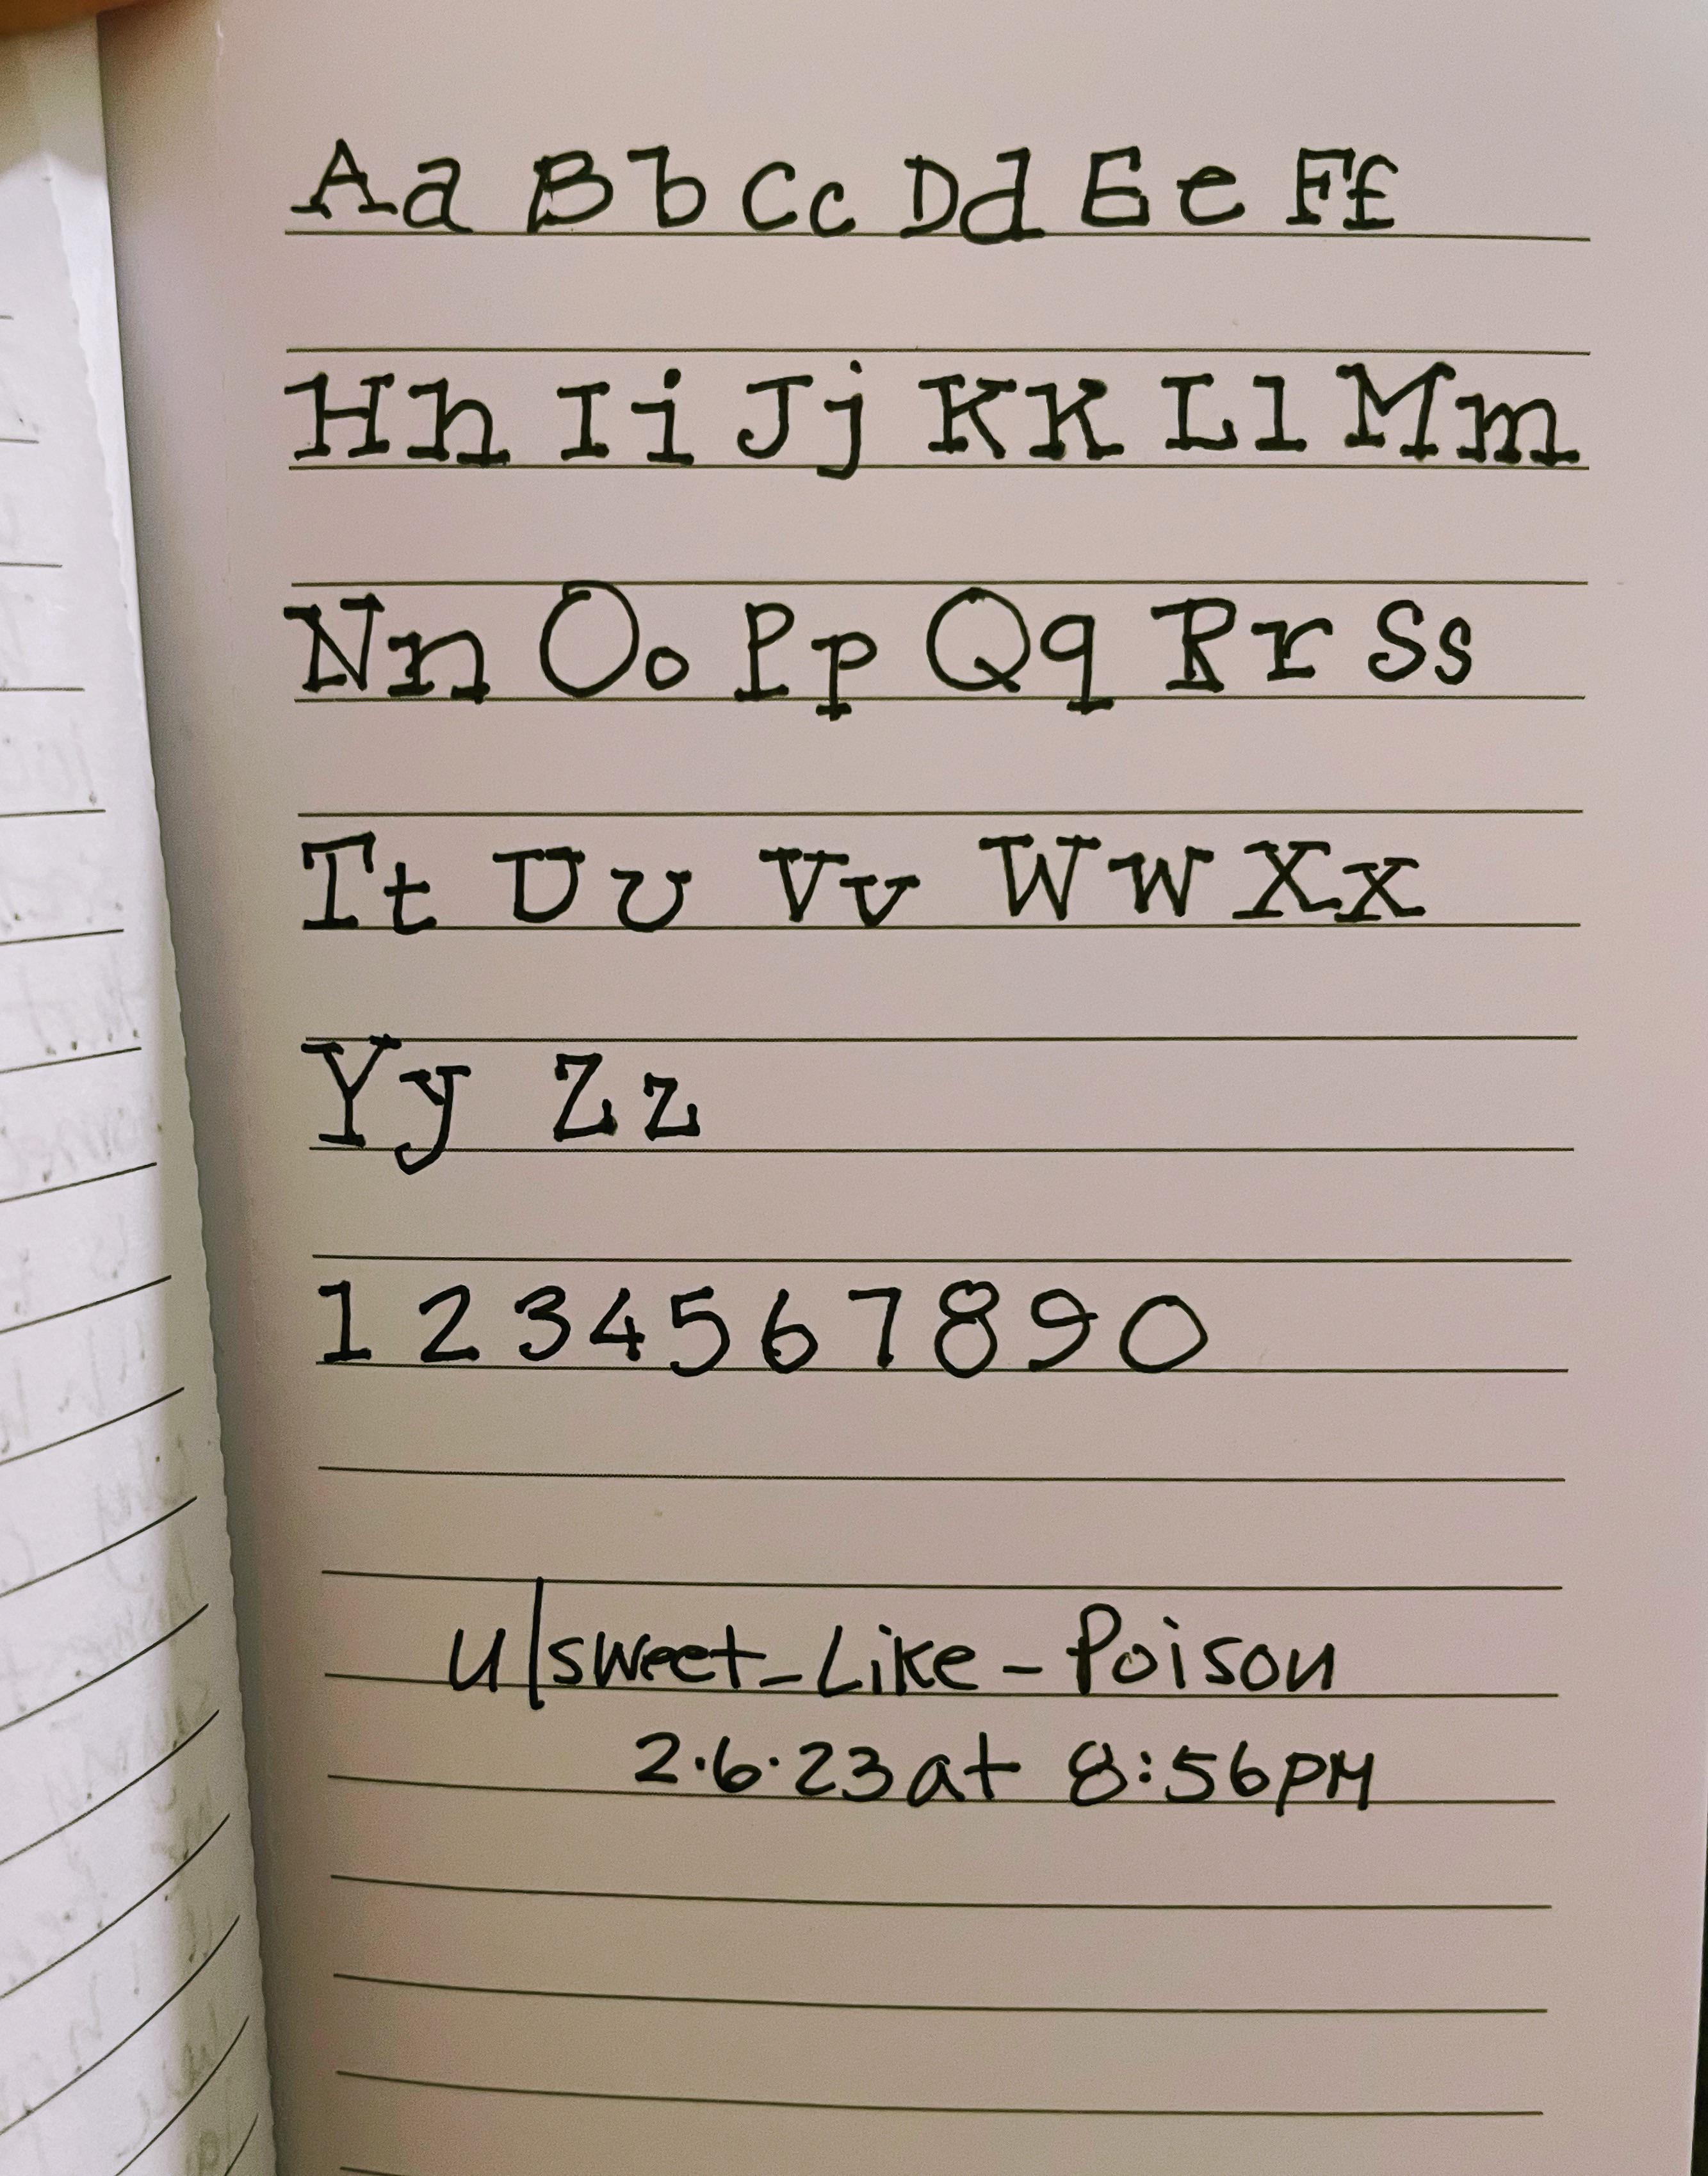 Aa Bb Cc Dd Ee Ff
Hh Ii Jj Kk Ll Mm
Nn Oo Pp Qq Rr Ss
Tt Uu Vv Ww Xx
Yy Zz
1 2 3 4 5 6 7 8 9 0
u/sweet_Like_Poison
2.6.23 at 8:56pM